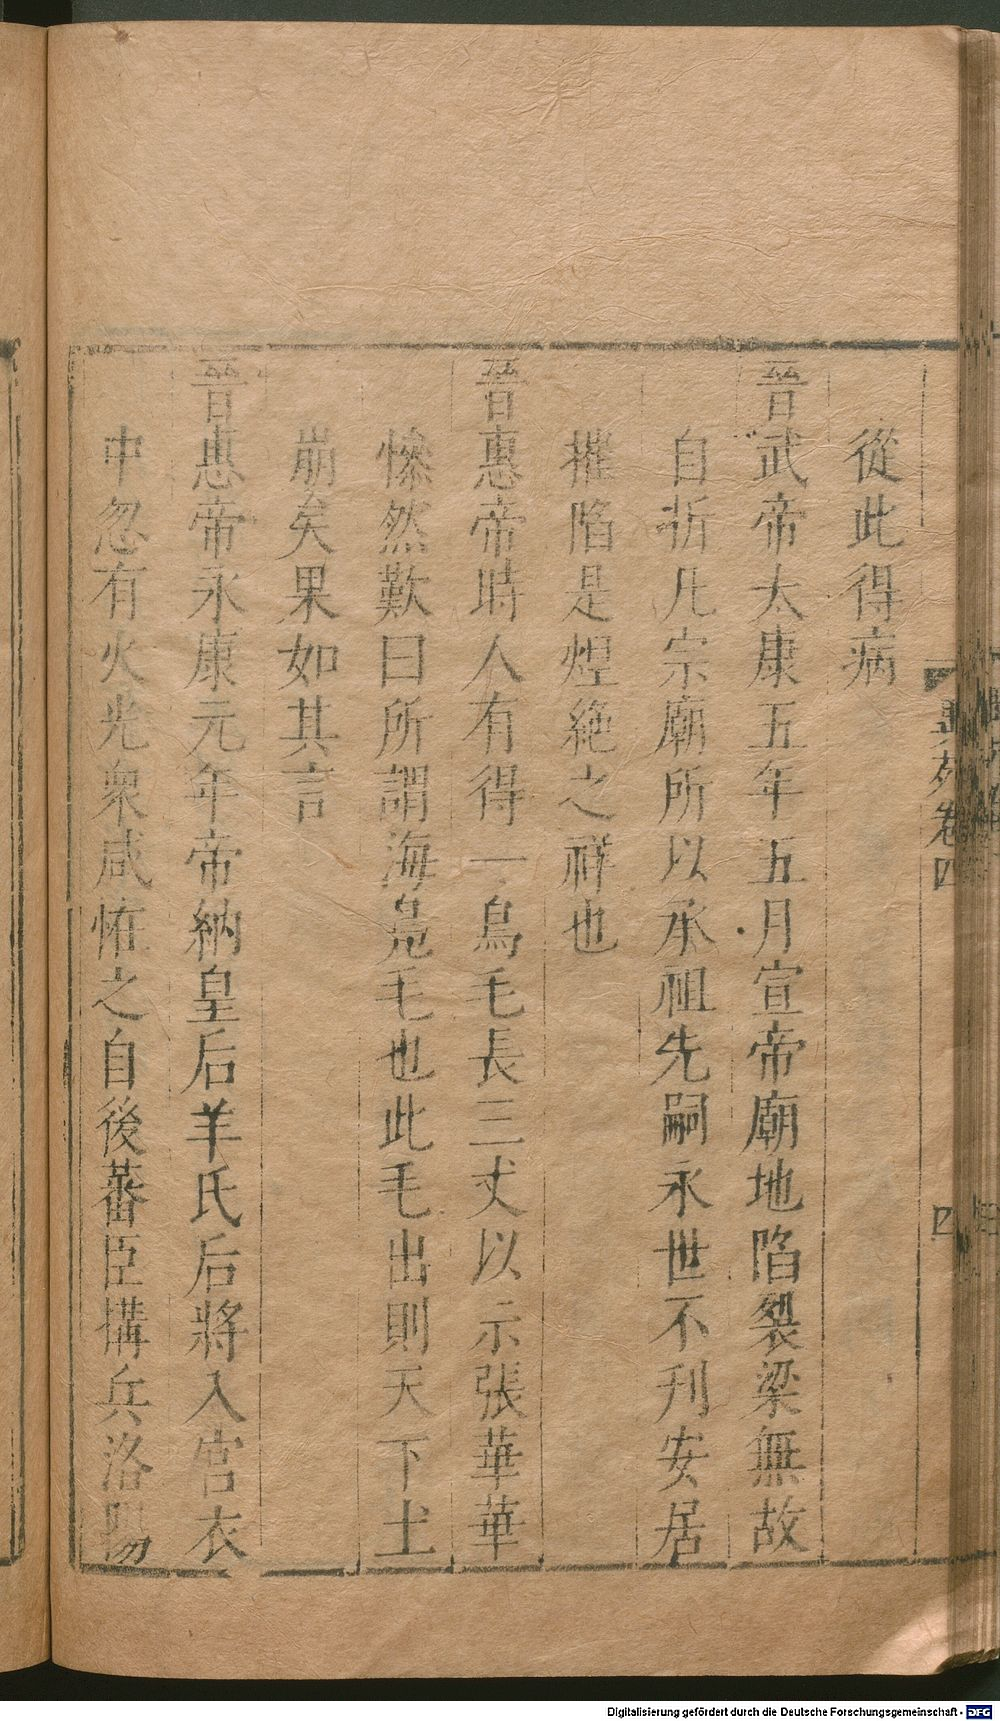 從此得病
晉武帝太康五年五月宣帝廟地陷裂梁無故
自折凡宗廟所以承祖先嗣永世不刊安居
摧陷是煙絶之祥也
晉惠帝時人有得一鳥毛長三丈以示張華華
慘然歎曰所謂海凫毛也此毛出則天下土
崩矣果如其言
晉惠帝永康元年帝納皇后羊氏后將入宮衣
中忽有火光衆咸恠之自後蕃臣搆兵洛陽
異苑卷四
四
Digitalisierung gefördert durch die Deutsche Forschungsgemeinschaft - DFG